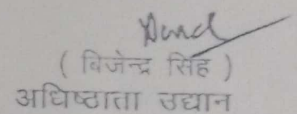 ( विजेन्द्र सिंह )
अधिष्ठाता उद्यान